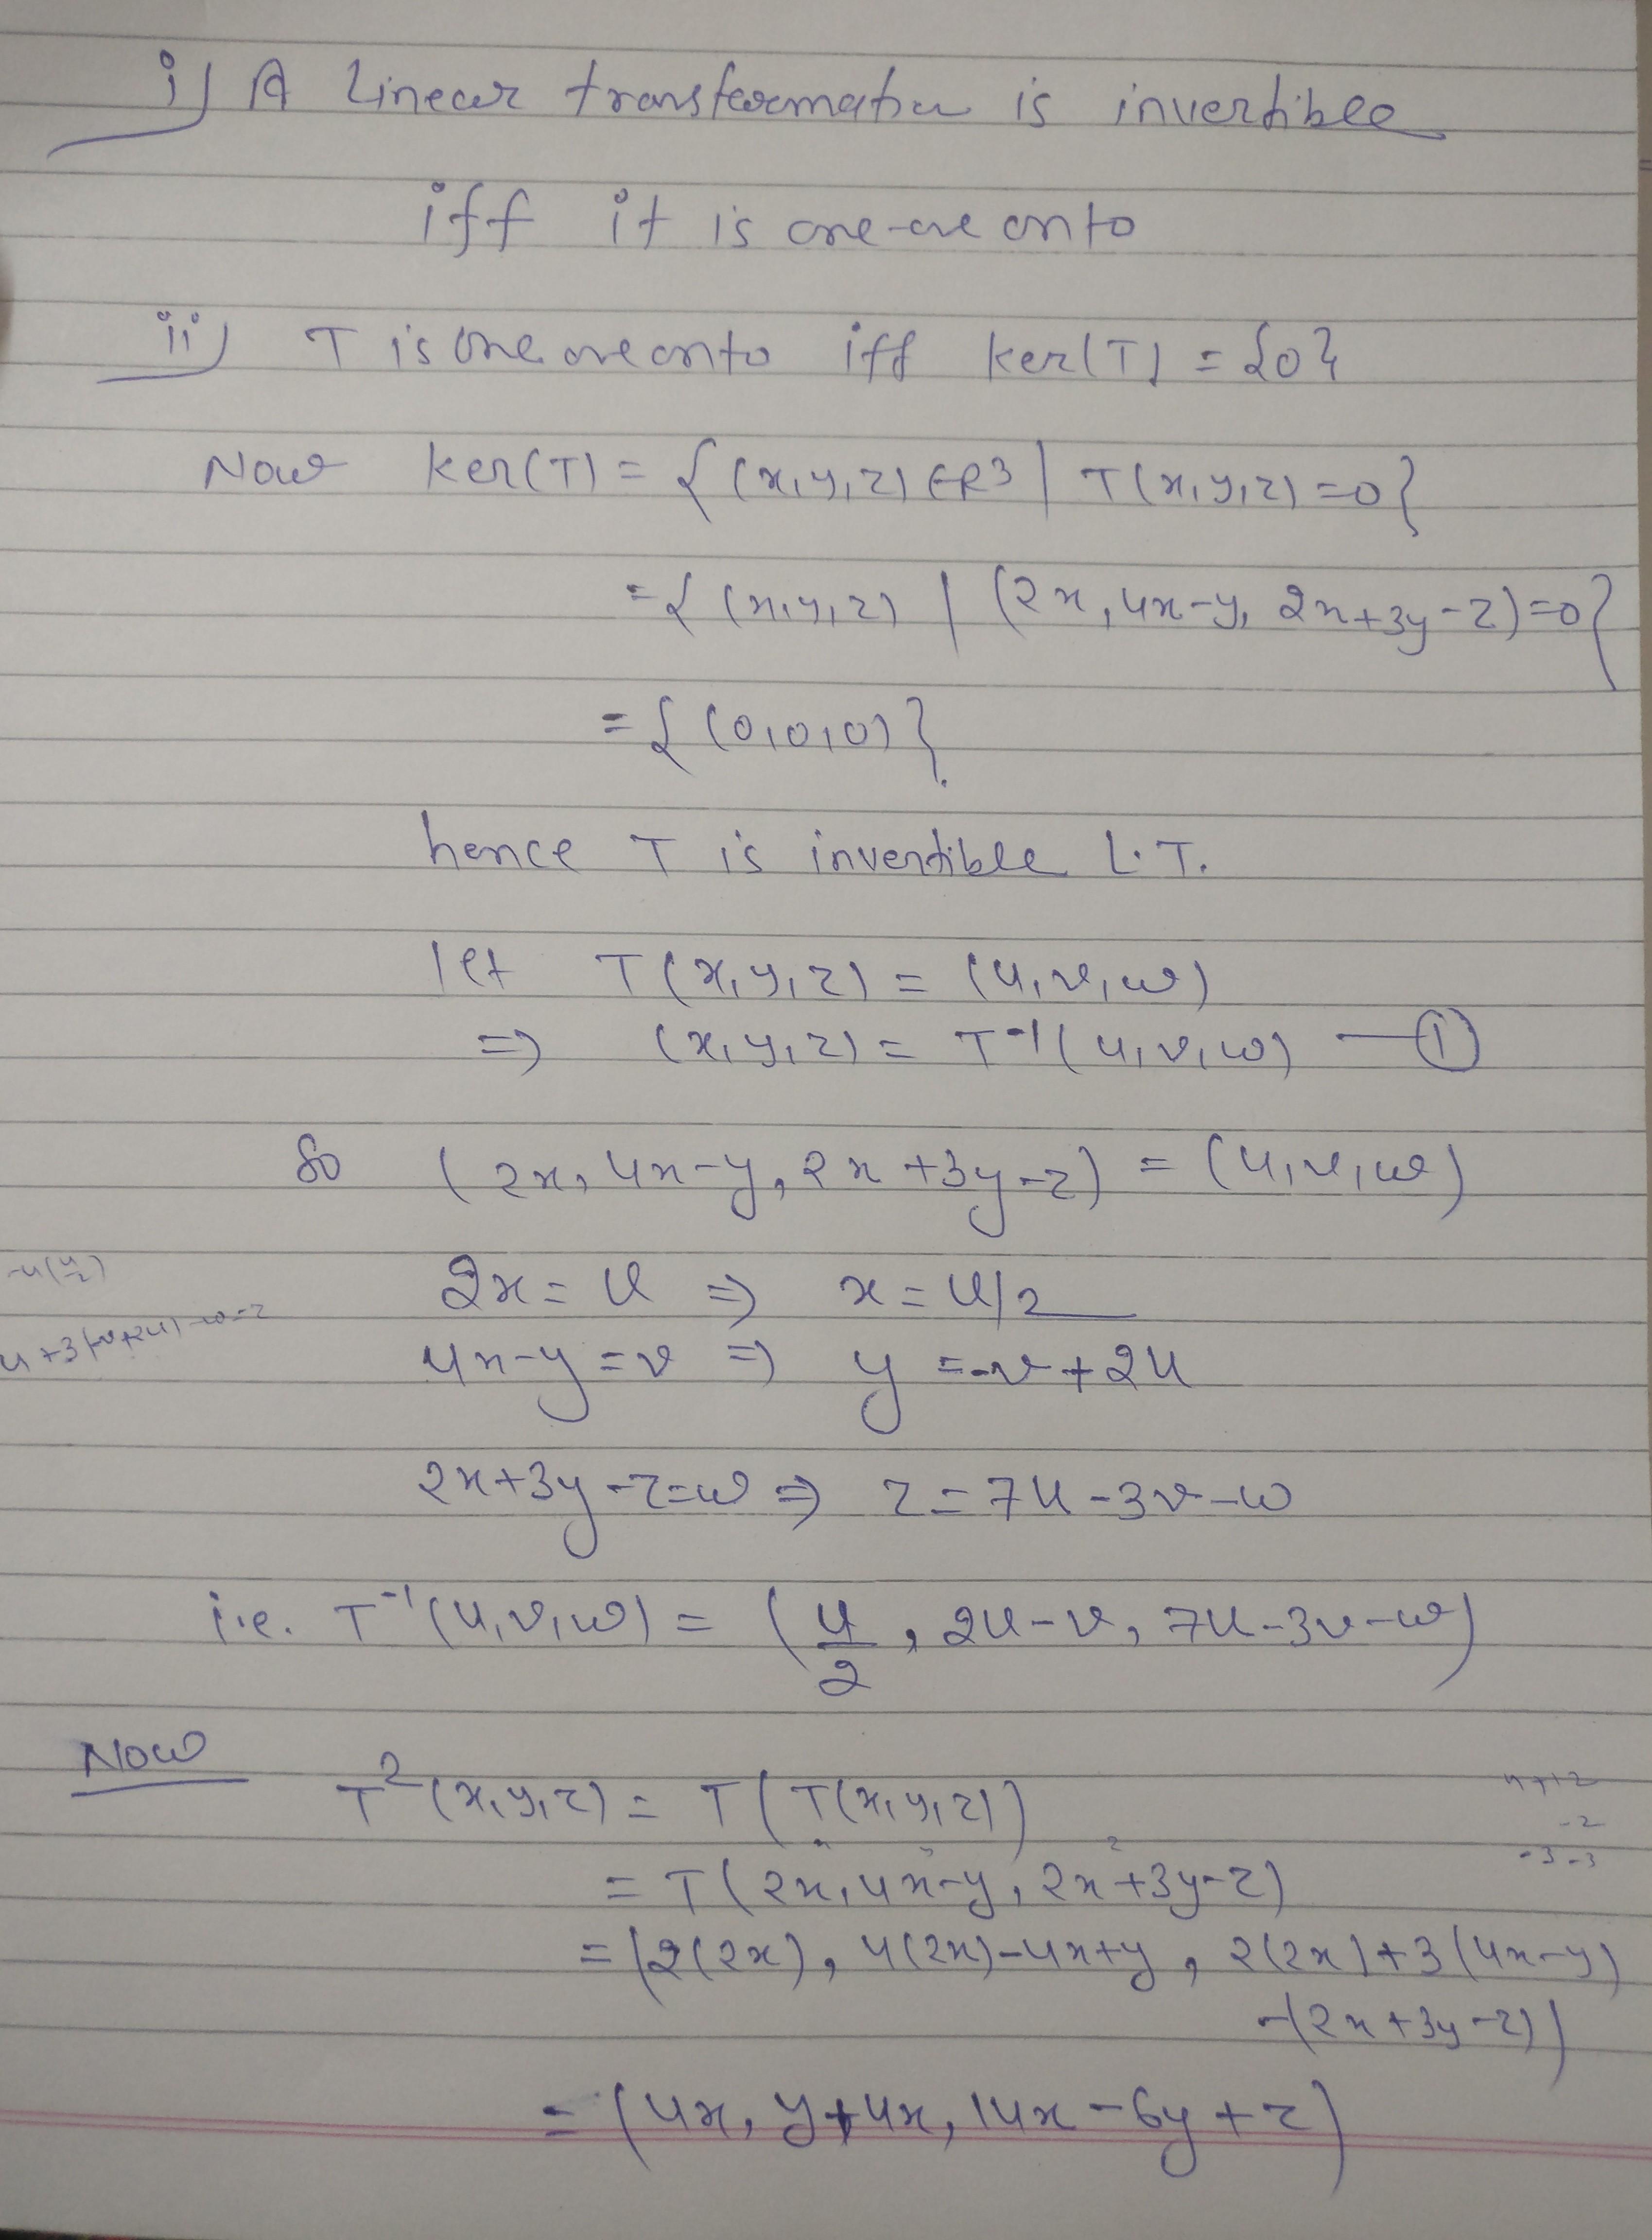 i) A Linear transformation is invertible
iff it is one-one onto
ii) T is one one onto iff ker(T) = {0}
Now ker(T) = { (x,y,z) ∈ R³ | T(x,y,z) = 0 }
= { (x,y,z) | (2x, 4x-y, 2x+3y-z) = 0 }
= { (0,0,0) }.
hence T is invertible L.T.
let T(x,y,z) = (u,v,w)
⇒ (x,y,z) = T⁻¹(u,v,w) — ①
So (2x, 4x-y, 2x+3y-z) = (u,v,w)
-4(u/2)
2x = u ⇒ x = u/2
u+3(-v+2u)-w=z
4x-y = v ⇒ y = -v+2u
2x+3y-z=w ⇒ z = 7u-3v-w
i.e. T⁻¹(u,v,w) = (u/2, 2u-v, 7u-3v-w)
Now
T²(x,y,z) = T(T(x,y,z))
-2
-3-3
= T(2x, 4x-y, 2x+3y-z)
= (2(2x), 4(2x)-4x+y, 2(2x)+3(4x-y)
-(2x+3y-z))
= (4x, y+4x, 14x-6y+z)